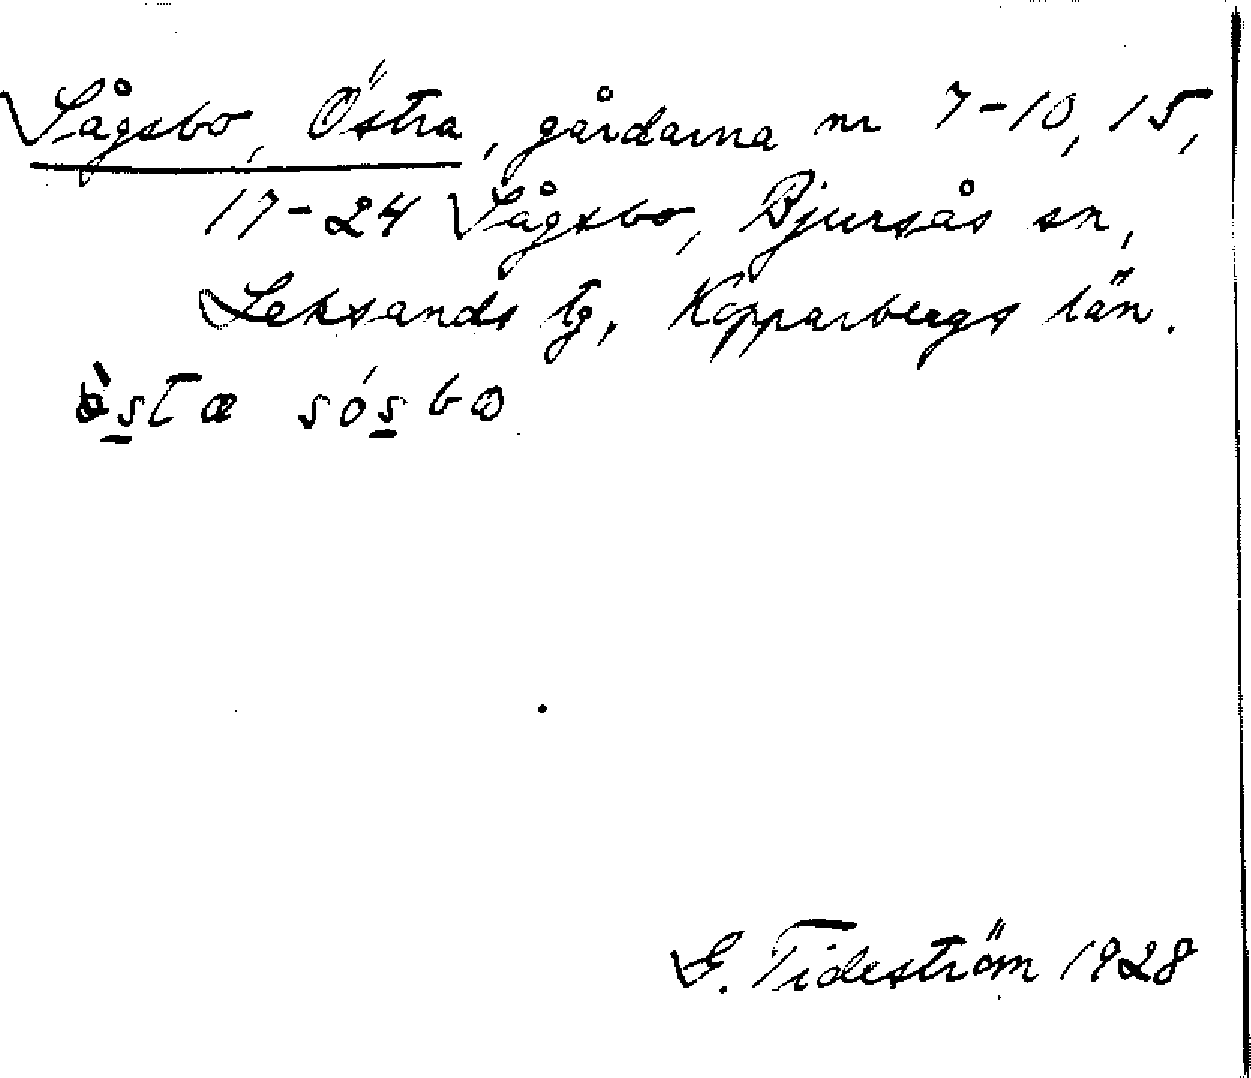 Sågsbo, Östra, gårdarna nr 7-10, 15,
17-24 Sågsbo, Bjursås sn,
Leksands tg, Kopparbergs län.
òsta sósbo
G. Tideström 1928